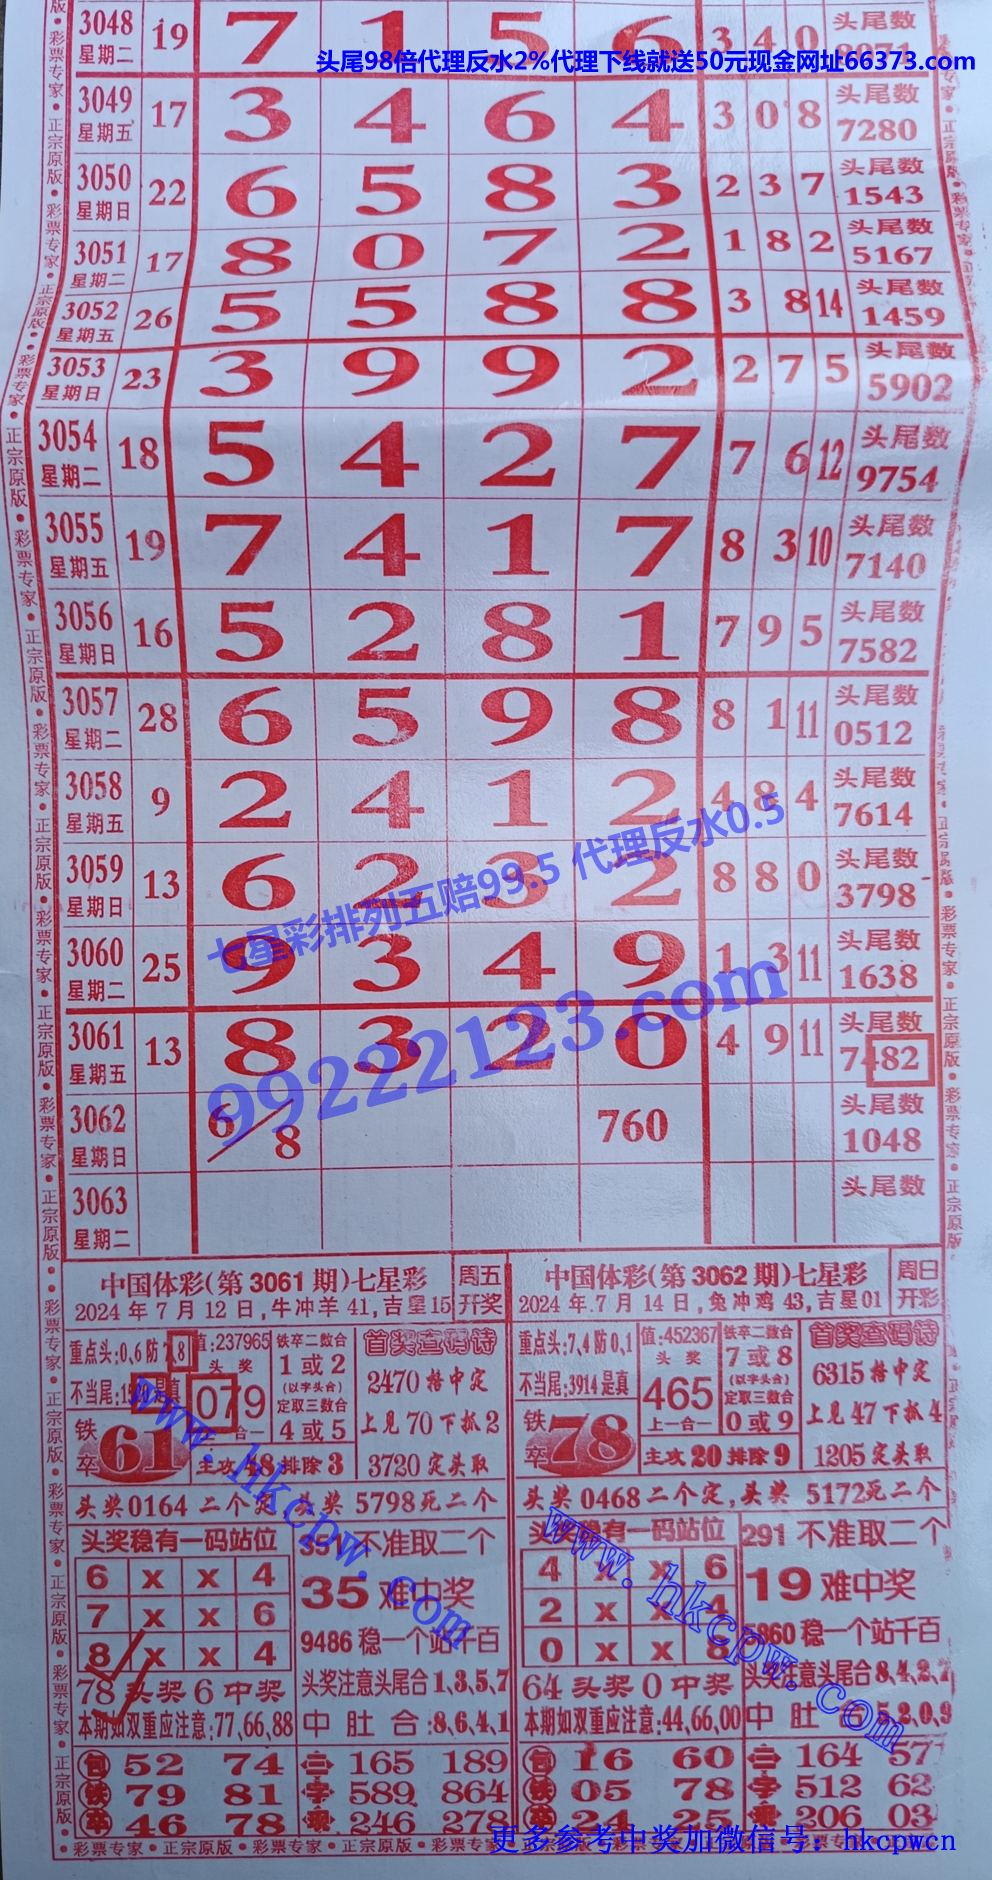 3048 19 7 1 5 6 3 4 0 头尾数
星期二 8071
头尾98倍代理反水2%代理下线就送50元现金网址66373.com
3049 17 3 4 6 4 3 0 8 头尾数
星期五 7280
3050 22 6 5 8 3 2 3 7 头尾数
星期日 1543
3051 17 8 0 7 2 1 8 2 头尾数
星期二 5167
3052 26 5 5 8 8 3 8 14 头尾数
星期五 1459
3053 23 3 9 9 2 2 7 5 头尾数
星期日 5902
3054 18 5 4 2 7 7 6 12 头尾数
星期二 9754
3055 19 7 4 1 7 8 3 10 头尾数
星期五 7140
3056 16 5 2 8 1 7 9 5 头尾数
星期日 7582
3057 28 6 5 9 8 8 1 11 头尾数
星期二 0512
3058 9 2 4 1 2 4 8 4 头尾数
星期五 7614
3059 13 6 2 3 2 8 8 0 头尾数
星期日 3798
七星彩排列五赔99.5 代理反水0.5
3060 25 9 3 4 9 1 3 11 头尾数
星期二 1638
99222123.com
3061 13 8 3 2 0 4 9 11 头尾数
星期五 7482
3062 6/8 760 头尾数
星期日 1048
3063 头尾数
星期二
中国体彩(第3061期)七星彩 周五
2024年7月12日,牛冲羊41,吉星15 开奖
重点头:0,6防7,8 值:237965 铁卒二数合 首奖查码诗
头奖 1或2 2470格中定
079 (以字头合)
上一合一 定取三数合 上见70下抓2
铁卒 61 4或5
主攻48排除3 3720定头取
头奖0164二个定,头奖5798死二个
头奖稳有一码站位 391不准取二个
6 x x 4 35难中奖
7 x x 6
8 x x 4 9486稳一个站千百
78头奖6中奖 头奖注意头尾合1,3,5,7
本期如双重应注意:77,66,88 中肚合:8,6,4,1
包 52 74 二 165 189
铁 79 81 字 589 864
卒 46 78 现 246 278
中国体彩(第3062期)七星彩 周日
2024年7月14日,兔冲鸡43,吉星01 开彩
重点头:7,4防0,1 值:452367 铁卒二数合 首奖查码诗
头奖 7或8 6315格中定
不当尾:3914是真 465 (以字头合)
上一合一 定取三数合 上见47下抓4
铁卒 78 0或9
主攻20排除9 1205定头取
头奖0468二个定,头奖5172死二个
头奖稳有一码站位 291不准取二个
4 x x 6 19难中奖
2 x x 4
0 x x 8 稳一个站千百
64头奖0中奖 头奖注意头尾合8,4,2,7
本期如双重应注意:44,66,00 中肚合:5,2,0,9
包 16 60 二 164 577
铁 05 78 字 512 62
卒 24 25 现 206 03
www.hkcpw.com
www.hkcpw.com
彩票专家•正宗原版•彩票专家•正宗原版•彩票专家•正宗原版•彩票专家•正宗原版
更多参考中奖加微信号：hkcpwcn